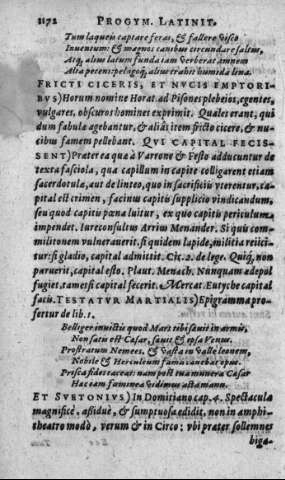 1172 PROGYM. LATINIT.
Tum laqueis captare feras, & fallere visco
Inventum: & magnos canibus circundare saltus,
Atq; alius latum funda iam verberat amnem
Alta petens: pelagoq; alius trahit humida lina.
FRICTI CICERIS, ET NVCIS EMPTORI-
BVS) Horum nomine Horat. ad Pisones plebeios, egentes,
vulgares, obscuros homines exprimit. Quales erant, qui
dum fabula agebantur, & aliàs item fricto cicere, & nu-
cibus famem pellebant. QVI CAPITAL FECIS-
SENT) Præter ea quæ à Varrone & Festo adducuntur de
texta fasciola, qua capillum in capite colligarent etiam
sacerdotula, aut de linteo, quo in sacrificiis vterentur, ca-
pital est crimen, facinus capitis supplicio vindicandum,
seu quod capitis pœna luitur, ex quo capitis periculum
impendet. Iureconsultus Arrius Menander. Si quis com-
militonem vulnerauerit. si quidem lapide, militia reiici-
tur: si gladio, capital admittit. Cic. 2. de lege. Quiq; non
paruerit, capital esto. Plaut. Menach. Nunquam ædepol
fugiet, tametsi capital fecerit. & Mercat. Eutyche capital
facis. TESTATVR MARTIALIS) Epigramma pro-
fertur de lib. 1.
Belliger invictis quod Mars tibi sæuit in armis,
Non satis est Cæsar, sæuit & ipsa Venus.
Prostratum Nemees, & vasta in valle leonem,
Nobile & Herculeum fama canebat opus.
Prisca fides taceat: nam post tua munera Cæsar
Hæc iam fœminea vidimus acta manu.
ET SVETONIVS) In Domitiano cap. 4. Spectacula
magnificè, assiduè, & sumptuosa edidit, non in amphi-
theatro modò, verum & in Circo: vbi præter sollemnes
biga-